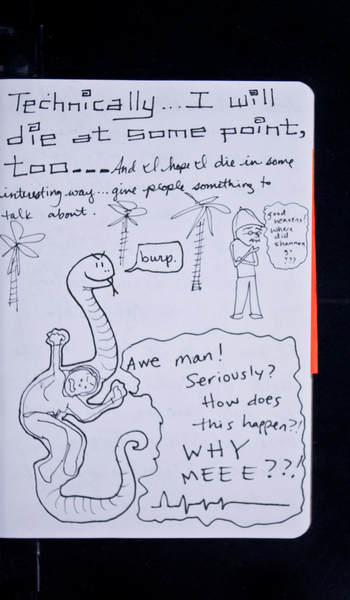 Technically... I will
die at some point,
too--- And I hope I die in some
interesting way... give people something to
talk about.
good
heavens!
Where
did
shannon
go
???
burp.
Awe man!
Seriously?
How does
this happen?!
WHY
MEEE??!